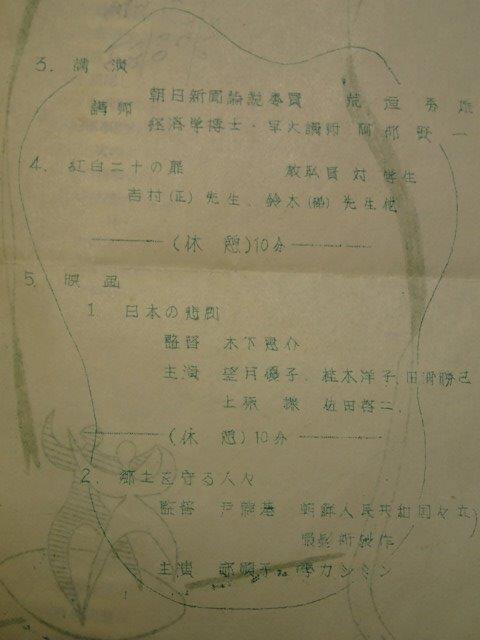 3. 講演
講師 朝日新聞論説委員 荒垣秀雄
経済学博士・早大講師 阿部野一
4. 紅白二十の扉 教職員対学生
吉村(正)先生、鈴木 先生他
(休憩)10分
5. 映画
1 日本の悲劇
監督 木下恵介
主演 望月優子、桂木洋子、田浦勝己
上原謙 佐田啓二
(休憩)10分
2. 郷土を守る人々
監督 尹龍 朝鮮人民共和国
製作
主演